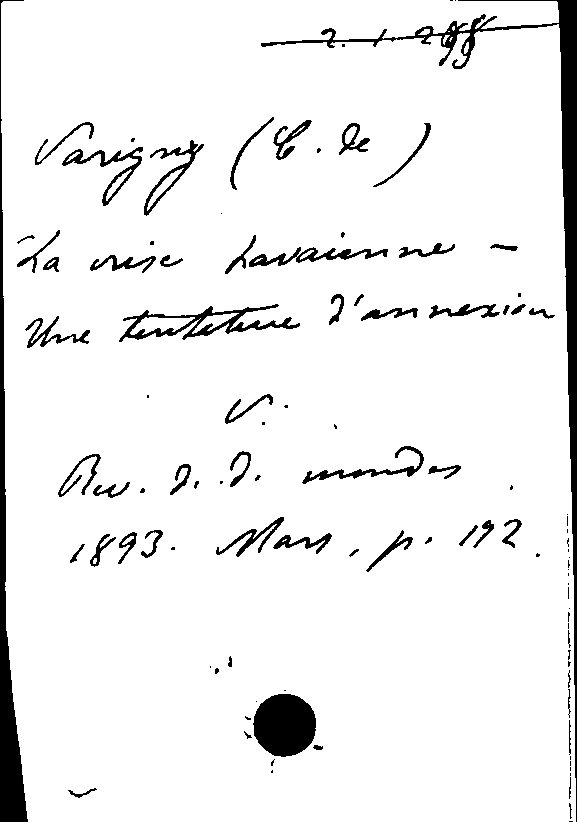 Varigny (C. de)
La crise havaienne -
Une tentative d'annexion
V.
Rev. d. d. mondes
1893. Mars, p. 192.